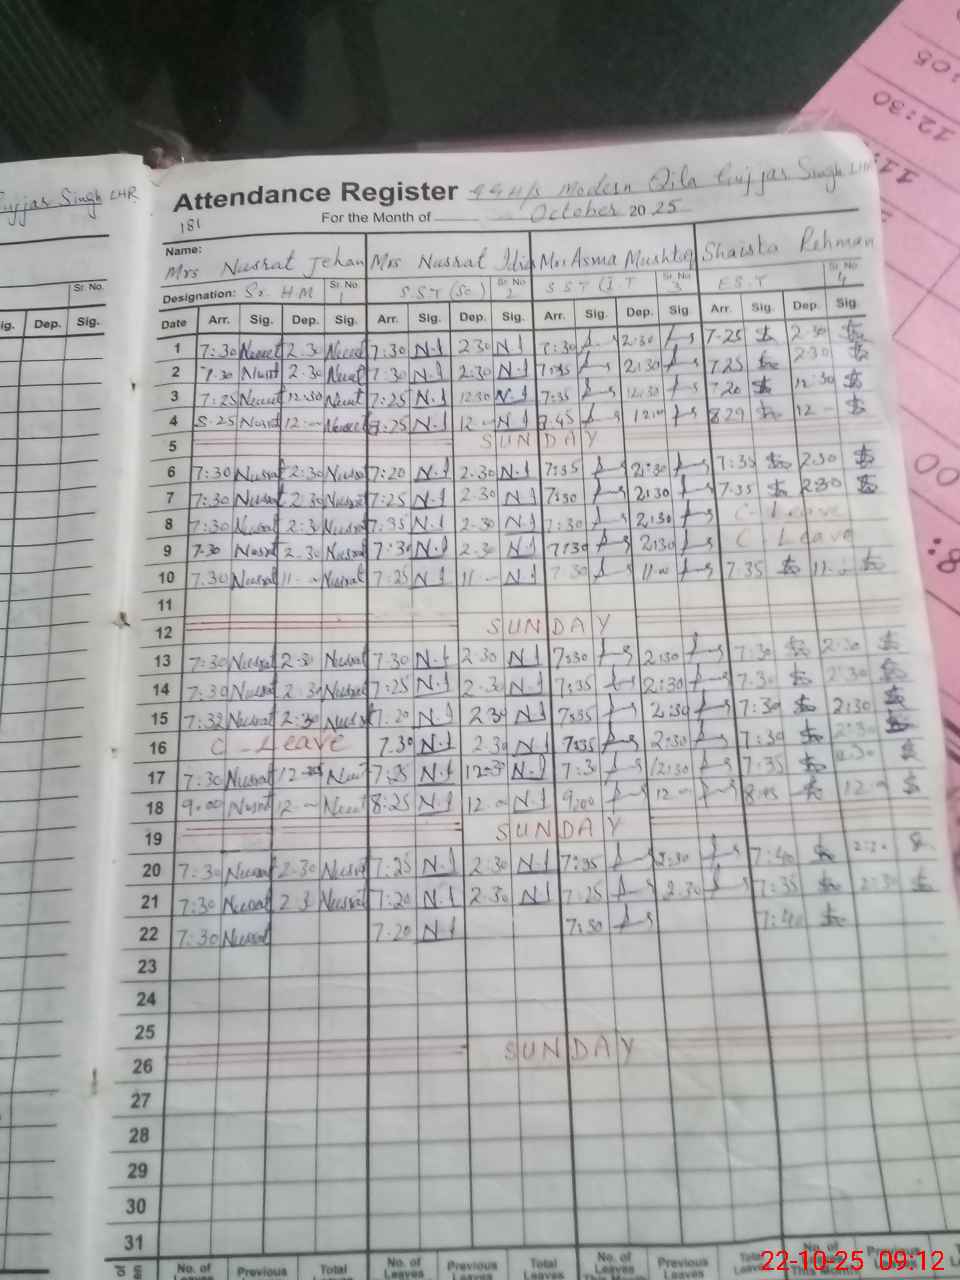 Singh LHR
Attendance Register GGH/S Modern Qila Gujjar Singh LHR
181 For the Month of October 2025
Name: Mrs Nusrat Jehan Mrs Nusrat Mrs Asma Mushtaq Shaista Rehman
Designation: Sr. H.M Sr. No. 1 S.S.T (Sc) Sr. No. 2 S.S.T (I.T Sr. No. 3 E.S.T Sr. No. 4
Date Arr. Sig. Dep. Sig. Arr. Sig. Dep. Sig. Arr. Sig. Dep. Sig. Arr. Sig. Dep. Sig.
1 7:30 Nusrat 2.30 Nusrat 7:30 N.I 2.30 N.I 7:30 2:30 7-25 2.30
2 7.30 Nusrat 2.30 Nusrat 7:30 N.I 2:30 N.I 7:35 2:30 7.25 2:30
3 7:25 Nusrat 12:30 Nusrat 7:25 N.I 12.30 N.I 7:35 12:30 7:20 12:30
4 8.25 Nusrat 12 Nusrat 8.25 N.I 12 N.I 8.45 12 8.29 12
5 SUNDAY
6 7:30 Nusrat 2:30 Nusrat 7:20 N.I 2.30 N.I 7:35 2:30 7:35 2:30
7 7:30 Nusrat 2.30 Nusrat 7:25 N.I 2.30 N.I 7:30 2:30 7:35 2:30
8 7:30 Nusrat 2:3 Nusrat 7:35 N.I 2.30 N.I 7:30 2:30 C-Leave
9 7.30 Nusrat 2.30 Nusrat 7:30 N.I 2.30 N.I 7:30 2:30 C-Leave
10 7.30 Nusrat 11 Nusrat 7:25 N.I 11 N.I 7 30 11 7.35 11
11
12 SUNDAY
13 7:30 Nusrat 2.30 Nusrat 7.30 N.I 2.30 N.I 7:30 2:30 7:30 2:30
14 7:30 Nusrat 2.30 Nusrat 7:25 N.I 2.30 N.I 7:35 2:30 7.30 2:30
15 7:32 Nusrat 2:30 Nusrat 7.20 N.I 2.30 N.I 7:35 2:30 7:30 2:30
16 C-Leave 7.30 N.I 2.30 N.I 7:35 2:30 7:30 2:30
17 7:30 Nusrat 12 Nusrat 7:25 N.I 12:30 N.I 7:30 12:30 7:35
18 9.00 Nusrat 12 Nusrat 8:25 N.I 12 N.I 9:00 12 8:45 12
19 SUNDAY
20 7:30 Nusrat 2.30 Nusrat 7:25 N.I 2:30 N.I 7:35 2:30 7:40 2:30
21 7:30 Nusrat 2.3 Nusrat 7:20 N.I 2.30 N.I 7:25 2.30 7:35 2:30
22 7:30 Nusrat 7.20 N.I 7:30 7:40
23
24
25
26 SUNDAY
27
28
29
30
31
No. of Leaves Previous Total Leaves No. of Leaves Previous Leaves Total Leaves No. of Leaves This Month Previous Leaves
22-10-25 09:12